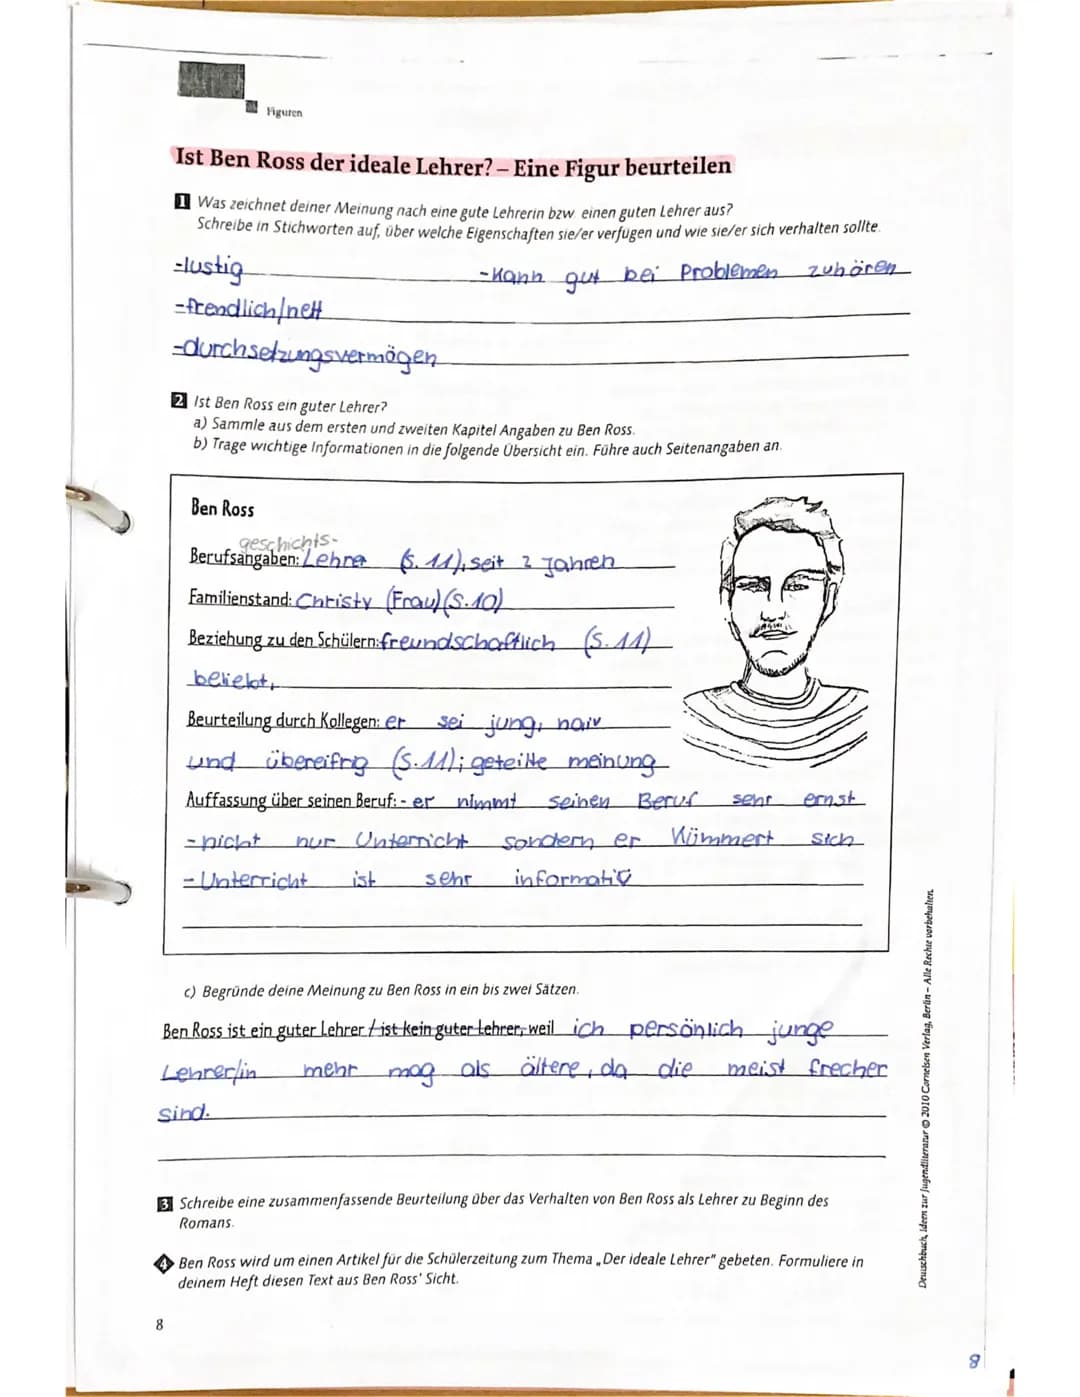 Figuren
Ist Ben Ross der ideale Lehrer? – Eine Figur beurteilen
1 Was zeichnet deiner Meinung nach eine gute Lehrerin bzw. einen guten Lehrer aus?
Schreibe in Stichworten auf, über welche Eigenschaften sie/er verfugen und wie sie/er sich verhalten sollte.
-lustig -Kann gut bei Problemen zuhören
-frendlich/nett
-durchsetzungsvermögen
2 Ist Ben Ross ein guter Lehrer?
a) Sammle aus dem ersten und zweiten Kapitel Angaben zu Ben Ross.
b) Trage wichtige Informationen in die folgende Übersicht ein. Führe auch Seitenangaben an.
Ben Ross
geschichts-
Berufsangaben: Lehrer (S. 11), seit 2 Jahren
Familienstand: Christy (Frau) (S.10)
Beziehung zu den Schülern: freundschaftlich (S. 11)
beliebt,
Beurteilung durch Kollegen: er sei jung, naiv
und übereifrig (S.11); geteilte meinung
Auffassung über seinen Beruf: - er nimmt seinen Beruf sehr ernst
- nicht nur Unterricht sondern er Kümmert sich
- Unterricht ist sehr informativ
c) Begründe deine Meinung zu Ben Ross in ein bis zwei Sätzen.
Ben Ross ist ein guter Lehrer / ist kein guter Lehrer, weil ich persönlich junge
Lehrer/in mehr mag als ältere, da die meist frecher
sind.
3 Schreibe eine zusammenfassende Beurteilung über das Verhalten von Ben Ross als Lehrer zu Beginn des
Romans.
4 Ben Ross wird um einen Artikel für die Schülerzeitung zum Thema „Der ideale Lehrer" gebeten. Formuliere in
deinem Heft diesen Text aus Ben Ross' Sicht.
8
Deutschbuch, Ideen zur Jugendliteratur © 2010 Cornelsen Verlag, Berlin – Alle Rechte vorbehalten.
8